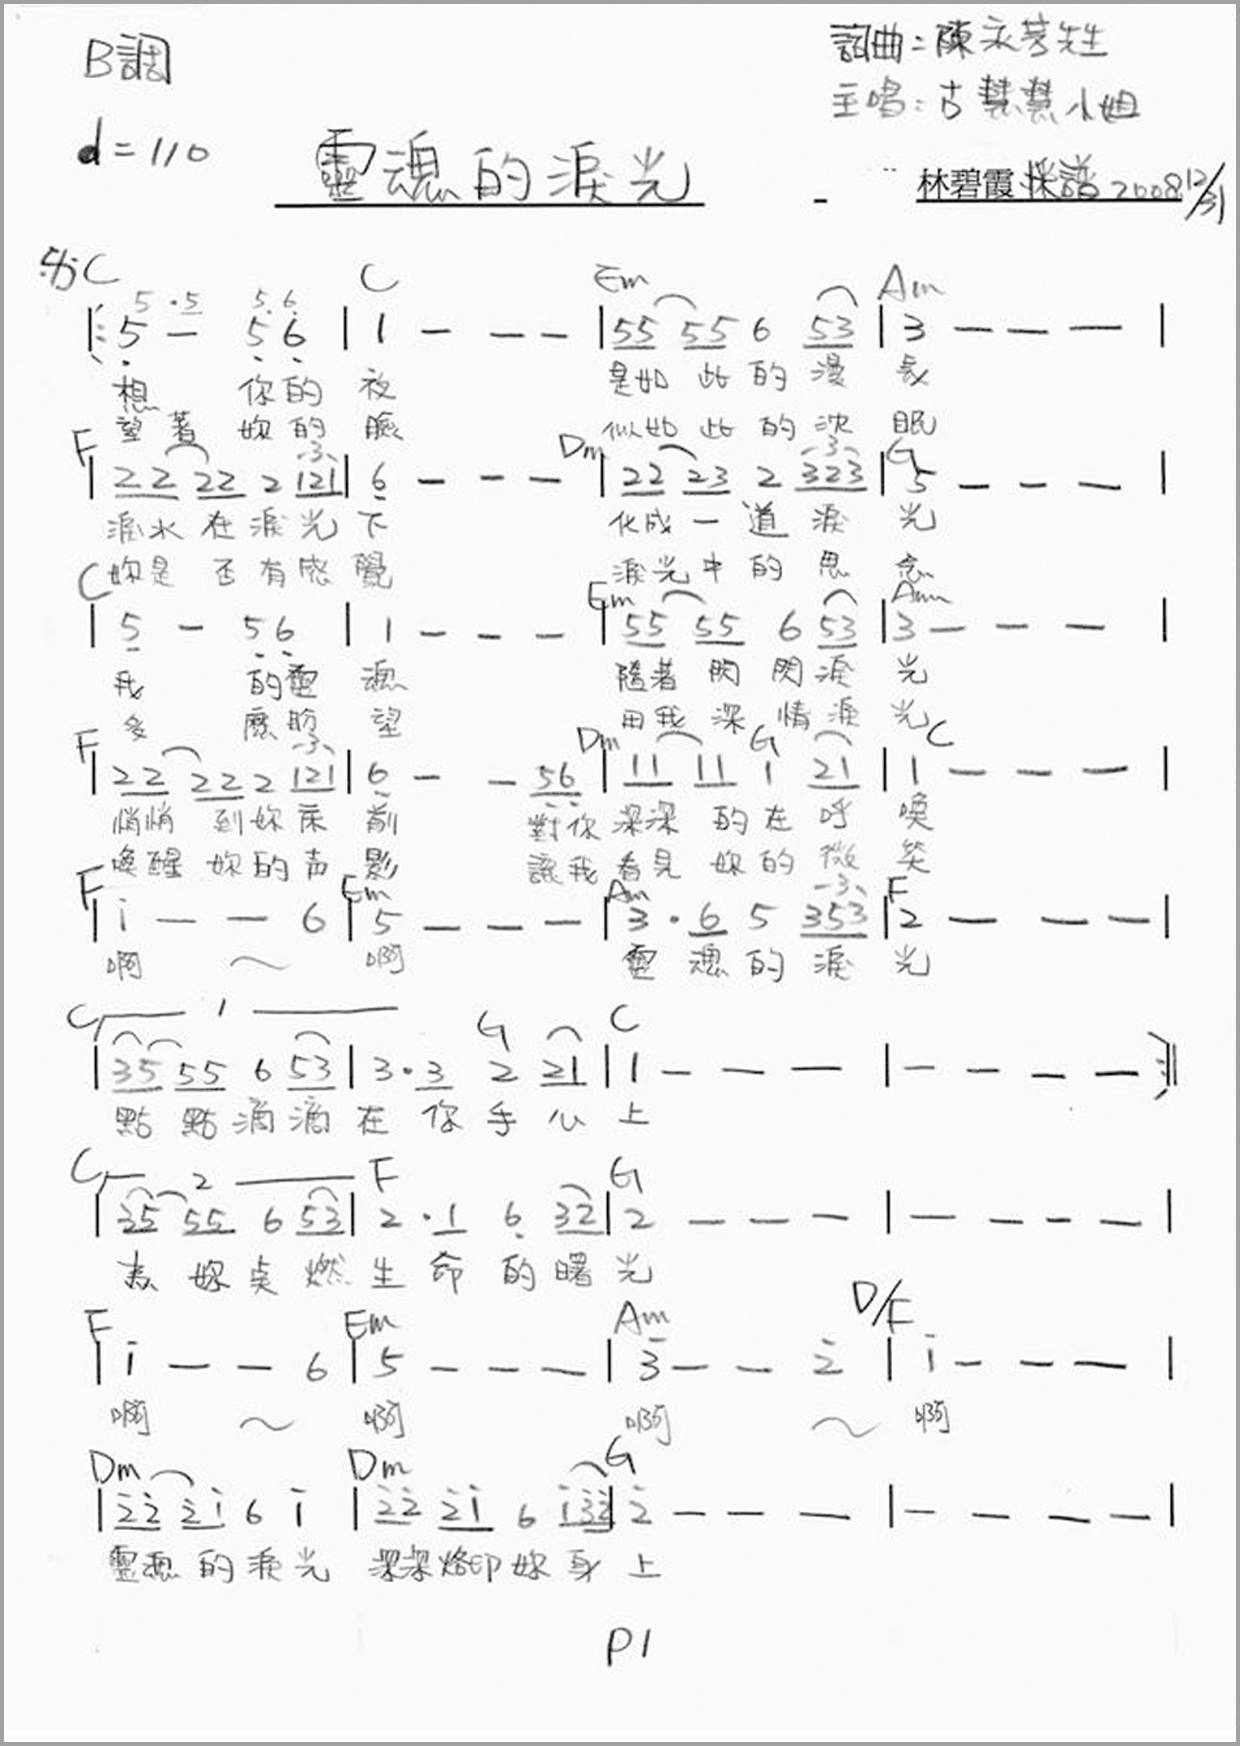 B調
詞曲:陳永芳先生
主唱:古慧慧小姐
♩=110
靈魂的淚光
林碧霞 採譜 2008 12/31
C C Em Am
5 · 5 5 6
|: 5 — 5 6 | 1 — — — | 55 55 6 53 | 3 — — — |
想 你的 夜 是如 此 的 漫 長
望著 妳的 臉 似如 此 的 沈 眠
F Dm G
| 22 22 2 121 | 6 — — — | 22 23 2 323 | 5 — — — |
淚水 在淚光 下 化成 一 道 淚 光
妳是 否有感 覺 淚光 中 的 思 念
C Em Am
| 5 — 5 6 | 1 — — — | 55 55 6 53 | 3 — — — |
我 的靈 魂 隨著 閃 閃 淚 光
多 麼盼 望 用我 深 情 淚 光
F Dm G C
| 22 22 2 121 | 6 — — 56 | 11 11 1 21 | 1 — — — |
悄悄 到妳床 前 對你 深深 的 在 呼 喚
喚醒 妳的声 影 讓我 看見 妳的 微 笑
F Em Am F
| i — — 6 | 5 — — — | 3 · 6 5 353 | 2 — — — |
啊 ~ 啊 靈 魂 的 淚 光
C 1 G C
| 35 55 6 53 | 3 · 3 2 21 | 1 — — — | — — — — :||
點 點 滴 滴 在 你 手 心 上
C 2 F G
| 35 55 6 53 | 2 · 1 6 32 | 2 — — — | — — — — |
為 妳 点 燃 生 命 的 曙 光
F Em Am D/F
| i — — 6 | 5 — — — | 3 — — 2 | i — — — |
啊 ~ 啊 啊 ~ 啊
Dm Dm G
| 22 2i 6 i | 22 2i 6 i32 | 2 — — — | — — — — |
靈魂 的 淚 光 深深 烙印 妳 身 上
P1